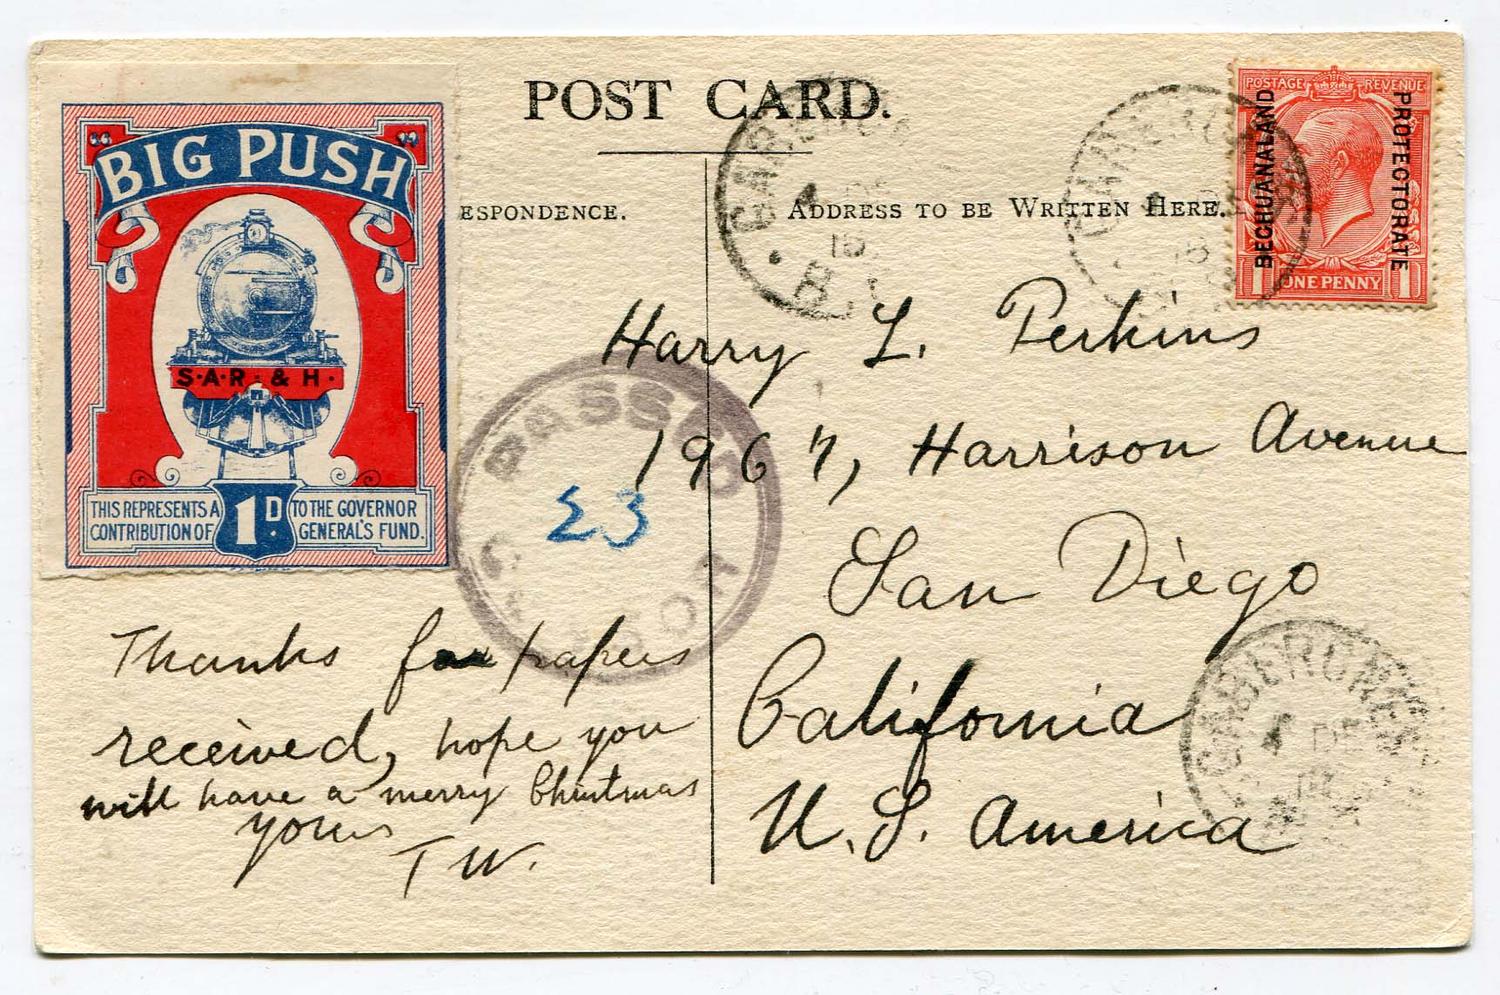 POST CARD.
ESPONDENCE.
ADDRESS TO BE WRITTEN HERE.
"BIG PUSH"
S·A·R· & H·
THIS REPRESENTS A CONTRIBUTION OF
1D.
TO THE GOVERNOR GENERAL'S FUND.
POSTAGE REVENUE
BECHUANALAND
PROTECTORATE
1 ONE PENNY 1
PASSED
23
Harry L. Perkins
1967, Harrison Avenue
San Diego
California
U. S. America
Thanks for papers
received, hope you
will have a merry Christmas
yours
T W.
GABERONES